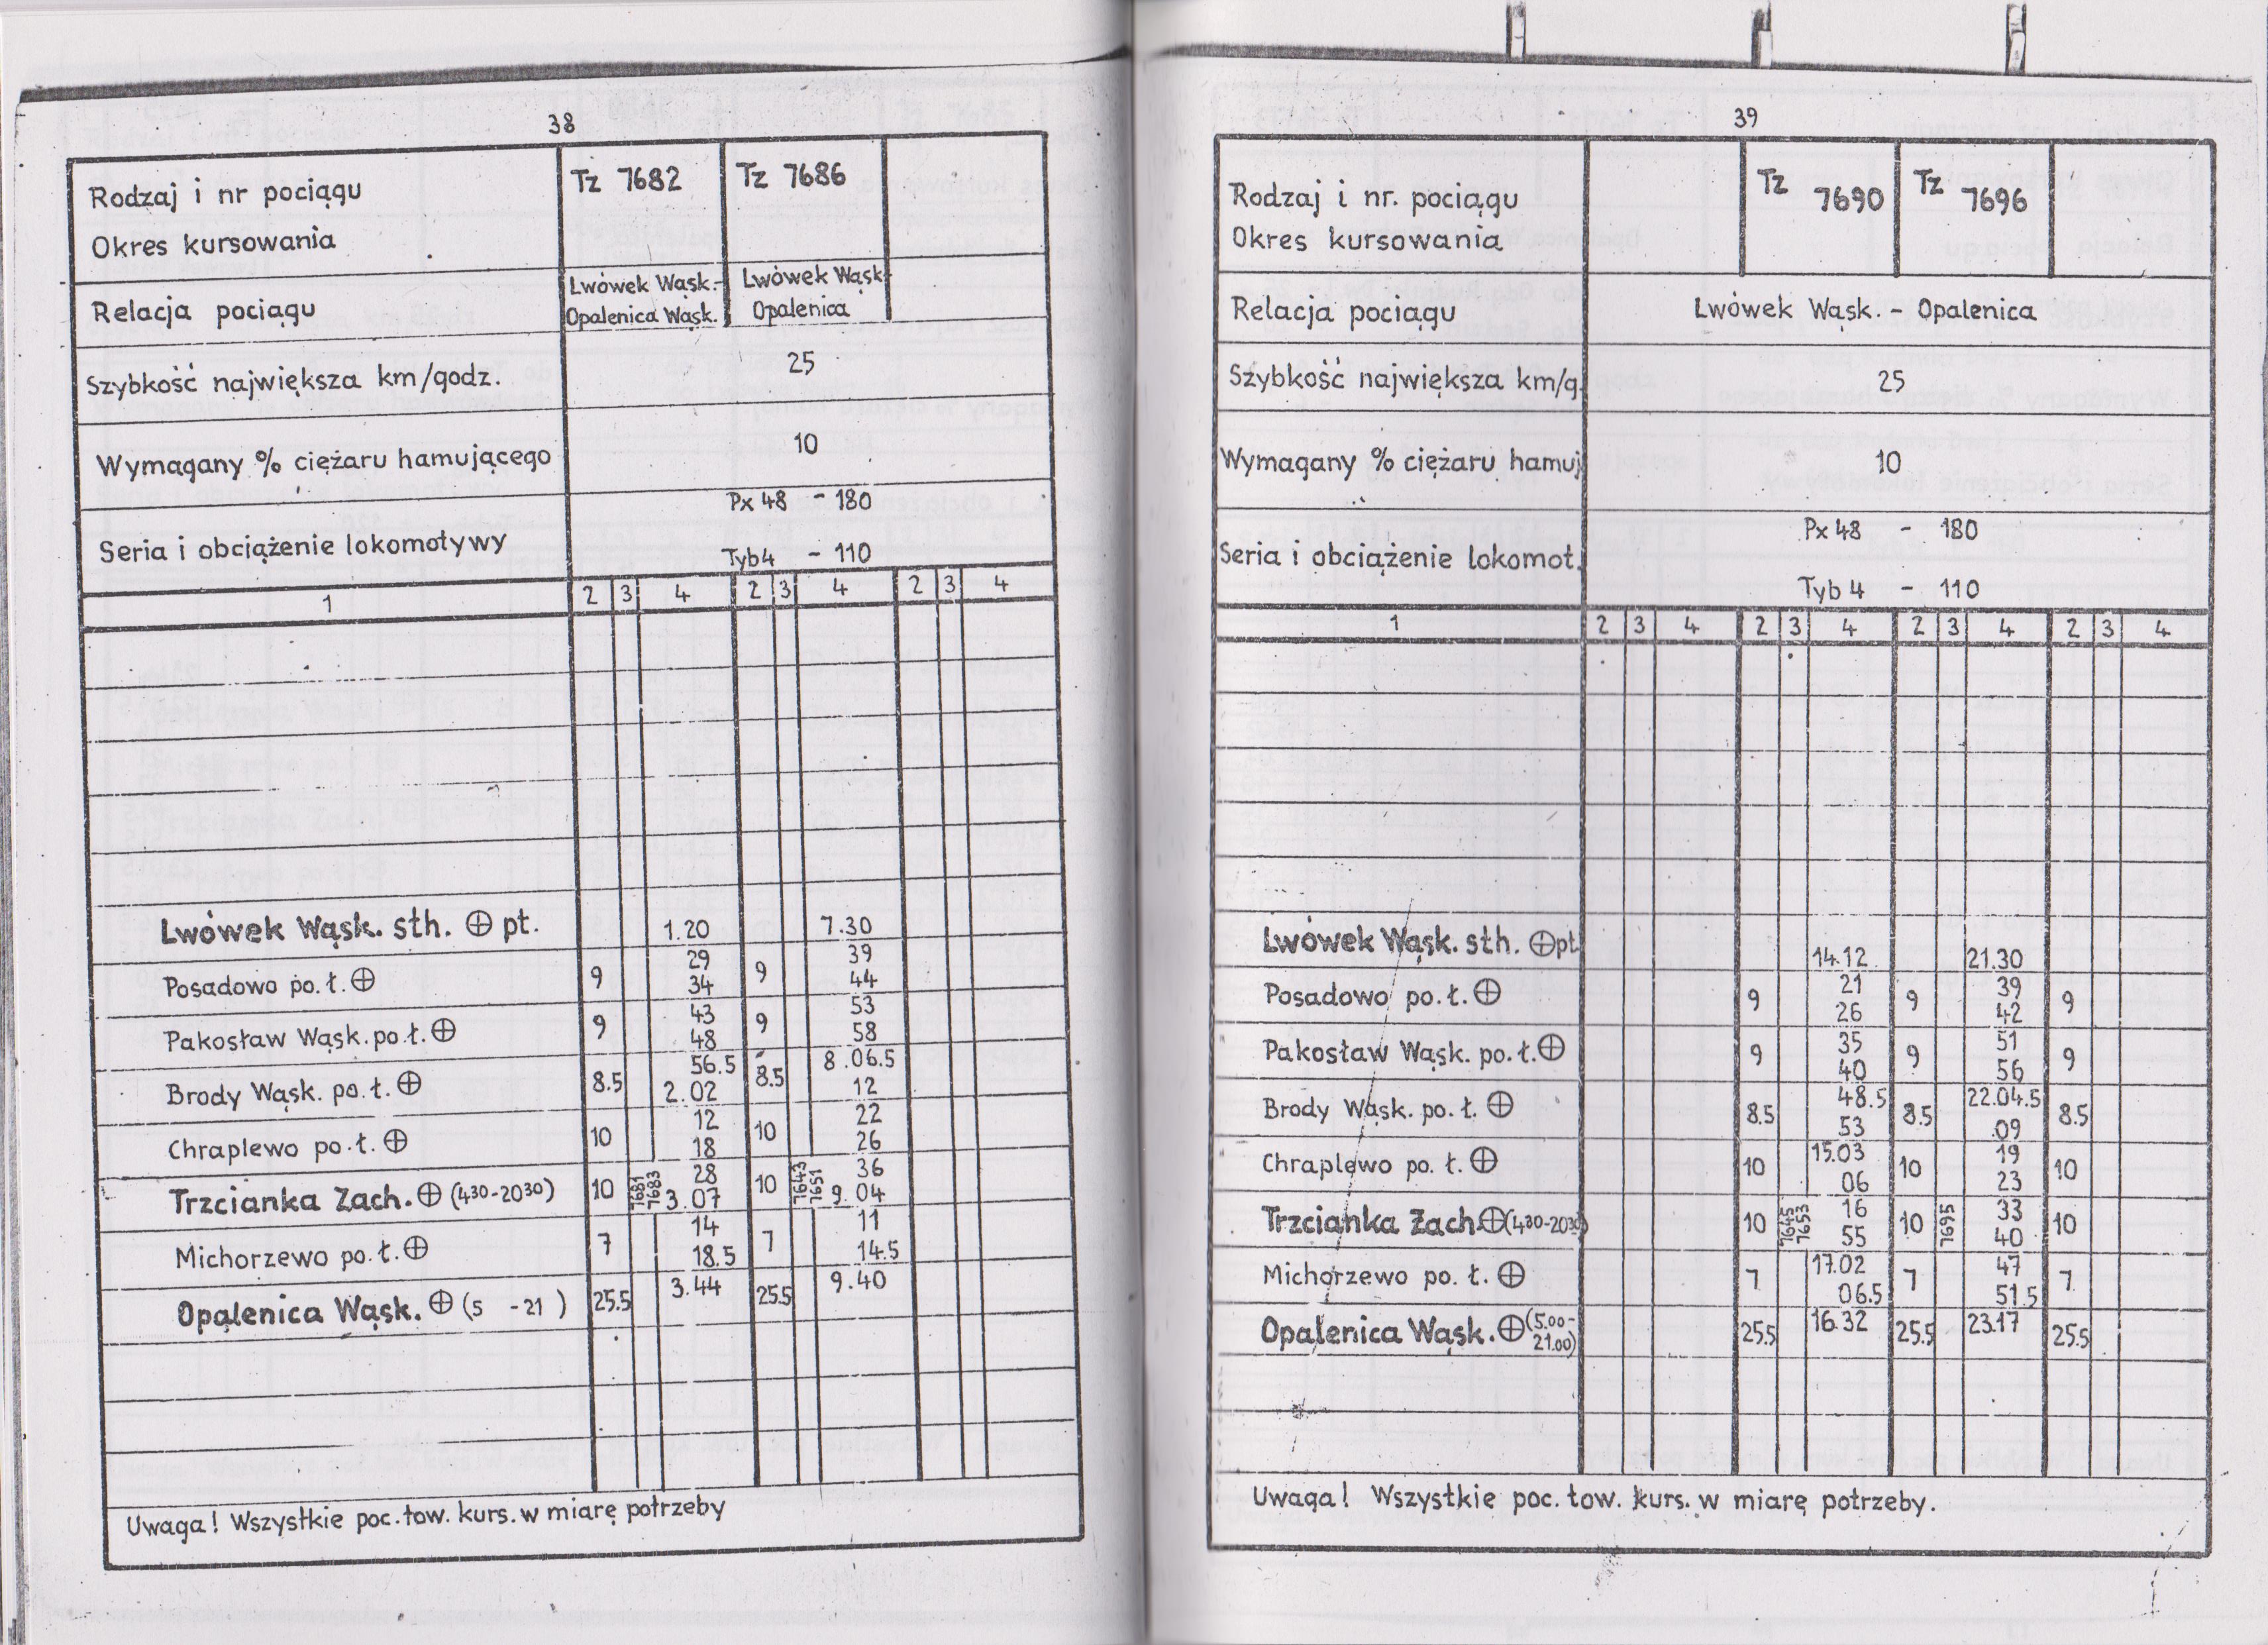 38
Rodzaj i nr pociągu
Okres kursowania
Tz 7682
Tz 7686
Relacja pociągu
Lwówek Wąsk.-
Opalenica Wąsk.
Lwówek Wąsk-
Opalenica
Szybkość największa km/godz.
25
Wymagany % ciężaru hamującego
10
Seria i obciążenie lokomotywy
Px 48 - 180
Tyb4 - 110
1 2 3 4 2 3 4 2 3 4
Lwówek Wąsk. sth. ⊕ pt. 1.20 7.30
29 39
Posadowo po. ł. ⊕ 9 34 9 44
43 53
Pakosław Wąsk. po ł. ⊕ 9 48 9 58
56.5 8.06.5
Brody Wąsk. po. ł. ⊕ 8.5 2.02 8.5 12
12 22
Chraplewo po. ł. ⊕ 10 18 10 26
28 36
Trzcianka Zach. ⊕ (4 30 - 20 30) 10 7681 7683 3.07 10 7643 7651 9.04
14 11
Michorzewo po. ł. ⊕ 7 18.5 7 14.5
Opalenica Wąsk. ⊕ (5 - 21 ) 25.5 3.44 25.5 9.40
Uwaga! Wszystkie poc. tow. kurs. w miarę potrzeby
39
Rodzaj i nr. pociągu
Okres kursowania
Tz 7690
Tz 7696
Relacja pociągu
Lwówek Wąsk. - Opalenica
Szybkość największa km/g.
25
Wymagany % ciężaru hamuj
10
Seria i obciążenie lokomot.
Px 48 - 180
Tyb 4 - 110
1 2 3 4 2 3 4 2 3 4 2 3 4
Lwówek Wąsk. sth. ⊕ pt 14.12 21.30
21 39
Posadowo po. ł. ⊕ 9 26 9 42 9
35 51
Pakosław Wąsk. po. ł. ⊕ 9 40 9 56 9
48.5 22.04.5
Brody Wąsk. po. ł. ⊕ 8.5 53 8.5 09 8.5
15.03 19
Chraplewo po. ł. ⊕ 10 06 10 23 10
16 33
Trzcianka Zach. ⊕ (4 30 - 20 30) 10 7645 7653 55 10 7695 40 10
17.02 47
Michorzewo po. ł. ⊕ 7 06.5 7 51.5 7
Opalenica Wąsk. ⊕ (5.00 - 21.00) 25.5 16.32 25.5 23.17 25.5
Uwaga! Wszystkie poc. tow. kurs. w miarę potrzeby.